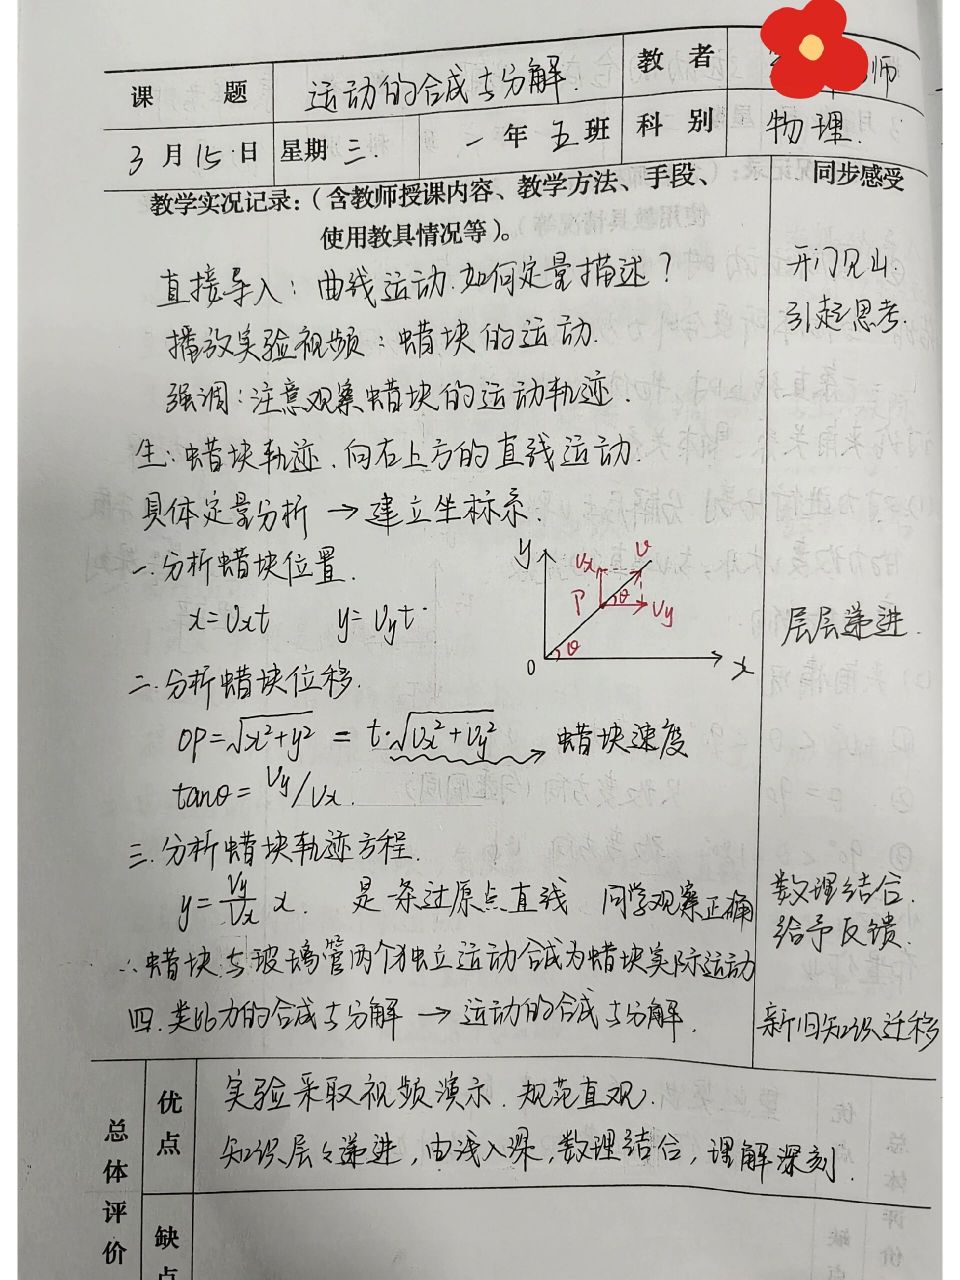 课 题 运动的合成与分解. 教 者 师
3 月 15 日 星期 三. 一 年 五 班 科 别 物理.
教学实况记录:(含教师授课内容、教学方法、手段、
使用教具情况等)。
同步感受
直接导入: 曲线运动.如何定量描述?
开门见山.
播放实验视频: 蜡块的运动.
引起思考.
强调: 注意观察蜡块的运动轨迹.
生: 蜡块轨迹.向右上方的直线运动.
具体定量分析 → 建立坐标系.
一.分析蜡块位置.
x=Vxt y=Vyt.
y Vx v
P θ Vy
θ
0 x
层层递进.
二.分析蜡块位移.
OP=√x²+y² = t·√Vx²+Vy² → 蜡块速度
tanθ= Vy/Vx.
三.分析蜡块轨迹方程.
y= Vy/Vx x. 是一条过原点直线 同学观察正确
数理结合.
给予反馈.
∴蜡块与玻璃管两个独立运动合成为蜡块实际运动
四.类比力的合成与分解 → 运动的合成与分解.
新旧知识迁移
总体评价
优点
实验采取视频演示.规范直观.
知识层々递进,由浅入深,数理结合,理解深刻.
缺点